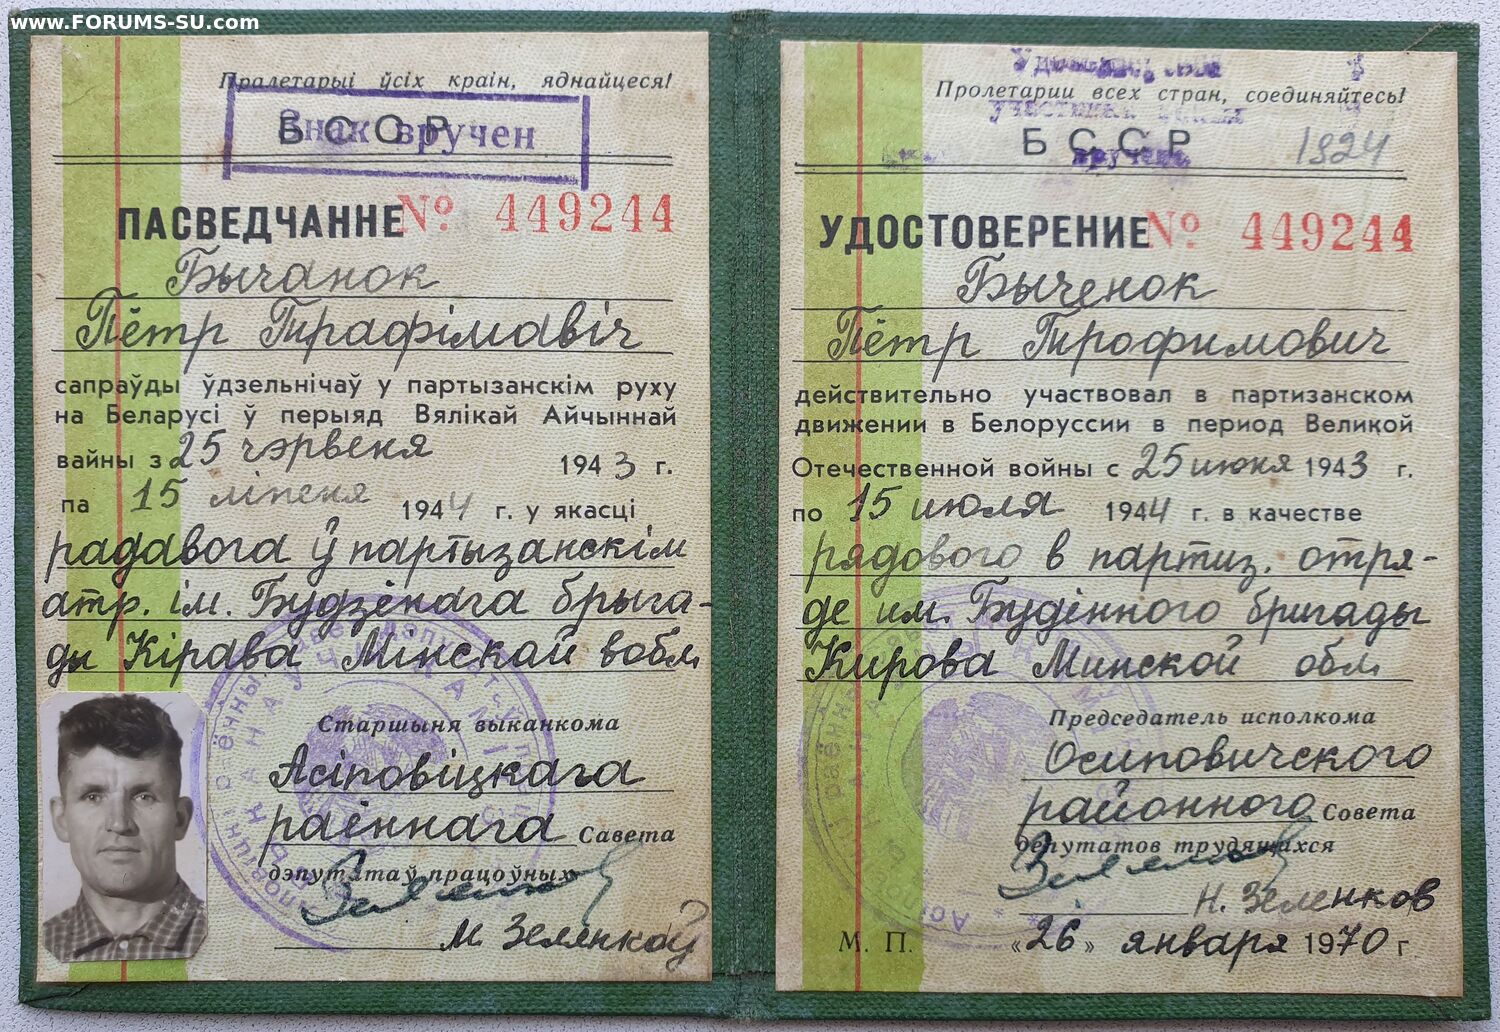 www.FORUMS-SU.com
Пралетарыі ўсіх краін, яднайцеся!
БССР
Знак вручен
ПАСВЕДЧАННЕ № 449244
Бычанок
Пётр Трафімавіч
сапраўды ўдзельнічаў у партызанскім руху
на Беларусі ў перыяд Вялікай Айчыннай
вайны з 25 чэрвеня 1943 г.
па 15 ліпеня 1944 г. у якасці
радавога ў партызанскім
атр. ім. Будзёнага брыга-
ды Кірава Мінскай вобл
Старшыня выканкома
Асіповіцкага
раённага Савета
дэпутатаў працоўных
М. Зелянкоў
Удостоверение
Пролетарии всех стран, соединяйтесь!
участника
БССР
вручено
1924
УДОСТОВЕРЕНИЕ № 449244
Быченок
Пётр Трофимович
действительно участвовал в партизанском
движении в Белоруссии в период Великой
Отечественной войны с 25 июня 1943 г.
по 15 июля 1944 г. в качестве
рядового в партиз. отря-
де им. Будённого бригады
Кирова Минской обл
Председатель исполкома
Осиповичского
районного Совета
депутатов трудящихся
Н. Зеленков
М. П. «26» января 1970 г